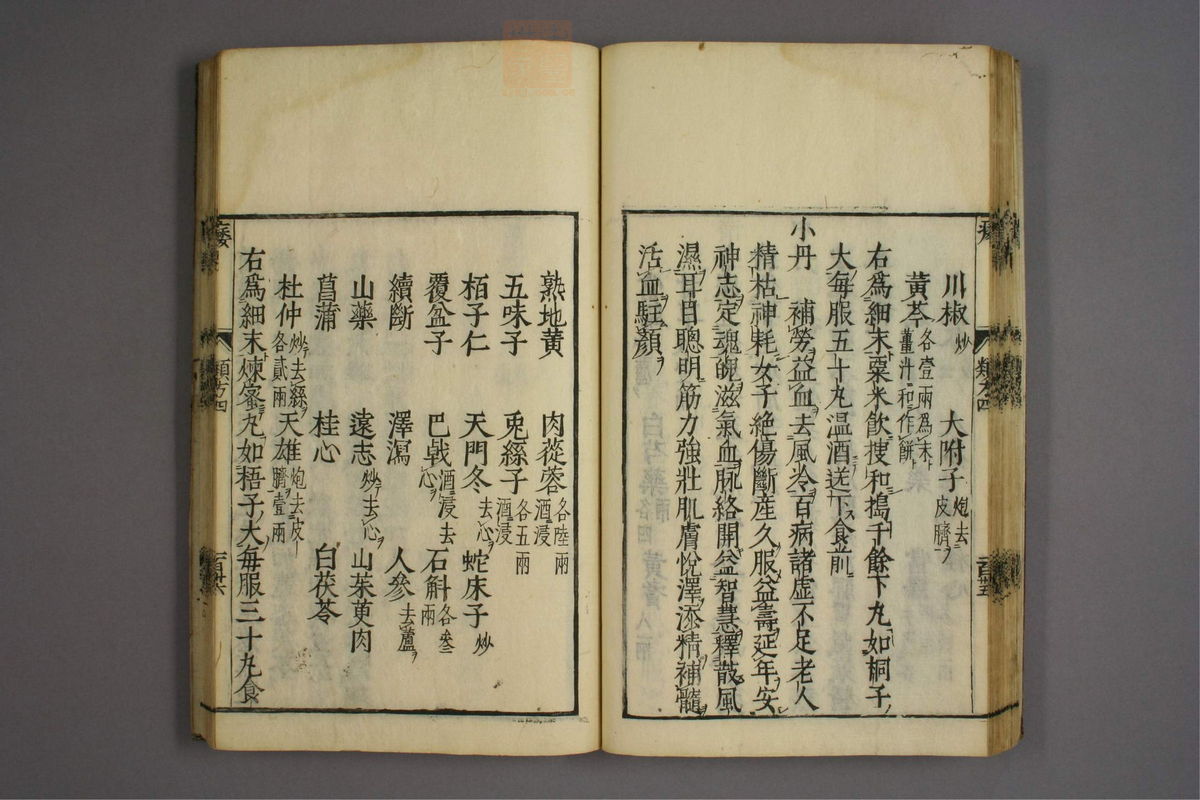 川椒炒　大附子炮去皮臍
黄芩各壹兩爲末薑汁和作餅
右爲細末粟米飲搜和搗千餘下丸如桐子
大毎服五十丸温酒送下食前
小丹　補勞益血去風冷百病諸虚不足老人
精枯神耗女子絶傷斷産久服益壽延年安
神志定魂魄滋氣血脉絡開益智慧釋散風
濕耳目聰明筋力強壯肌膚悅澤添精補髓
活血駐顏
熟地黄　肉蓯蓉各陸兩酒浸
五味子　兎絲子各五兩酒浸
栢子仁　天門冬去心　蛇床子炒
覆盆子　巴戟酒浸去心　石斛各叁兩
續斷　澤瀉　人參去蘆
山藥　遠志炒去心　山茱萸肉
菖蒲　桂心　白茯苓
杜仲炒去絲各貳兩　天雄炮去皮臍壹兩
右爲細末煉蜜丸如梧子大毎服三十丸食
類方四
類方四